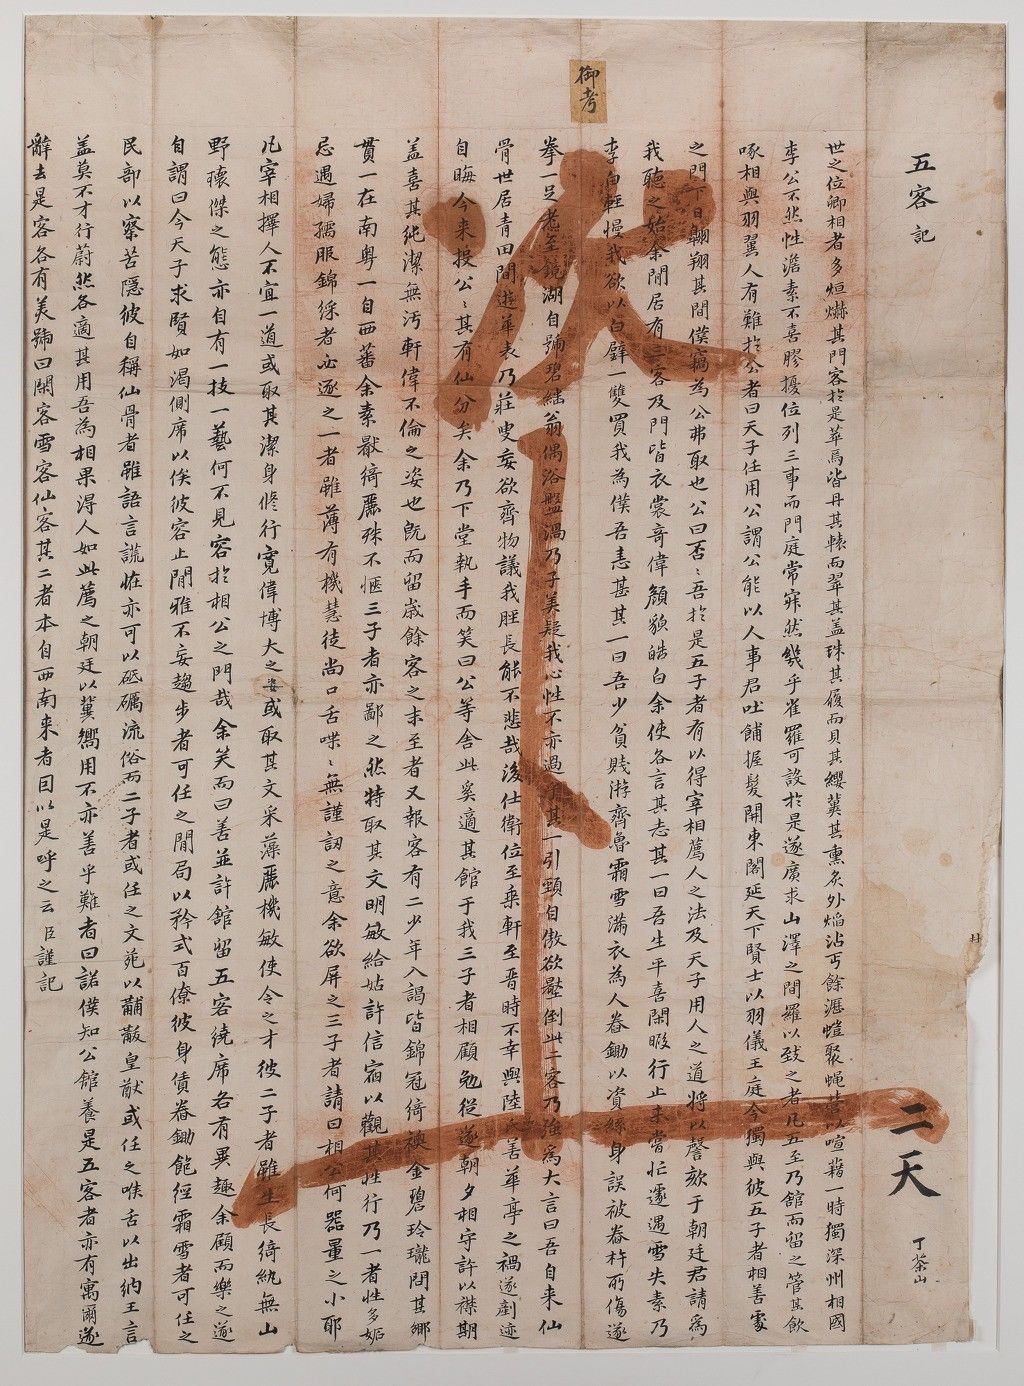 五客記
世之位卿相者多烜爀其門客於是華馬皆丹其轅而翠其盖珠其履而貝其纓冀其熏炙外焰沾丐餘瀝螘聚蝇營以喧藉一時獨深州相國
李公不然性澹素不喜膠擾位列三事而門庭常寂然幾乎雀羅可設於是遂廣求山澤之間羅以致之者凡五至乃館而留之管其飮
啄相與羽翼人有難於公者曰天子任用公謂公能以人事君吐餔握髮開東閣延天下賢士以羽儀王庭今獨與彼五子者相善處
之門下日翱翔其間僕竊為公弗取也公曰否〻吾於是五子者有以得宰相薦人之法及天子用人之道將以謦欬于朝廷君請為
我聽之始余閒居有三客及門皆衣裳奇偉顏貌皓白余使各言其志其一曰吾生平喜閑暇行止未嘗忙遽遇雪失素乃
李白輕慢我欲以白璧一雙買我為僕吾恚甚其一曰吾少貧賤游齊魯霜雪滿衣為人眷鋤以資絲身誤被眷杵所傷遂
拳一足老至鏡湖自號碧繼翁偶浴盤渦乃子美疑我心性不亦過乎其一引頸自傲欲壓倒此二客乃強為大言曰吾自来仙
骨世居青田間遊華表乃莊叟妄欲齊物議我脛長能不悲哉後仕衛位至乗軒至晋時不幸與陸氏善華亭之禍遂剷迹
自晦今来投公〻其有仙分矣余乃下堂執手而笑曰公等舍此奚適其館于我三子者相顧勉從遂朝夕相守許以襟期
盖喜其純潔無汚軒偉不倫之姿也旣而留歲餘客之未至者又報客有二少年入謁皆錦冠綺襖金碧玲瓏問其鄉
貫一在南粵一自西蕃余素厭綺麗殊不愜三子者亦鄙之然特取其文明敏給姑許信宿以觀其性行乃一者性多妬
忌遇婦孺服錦綵者必逐之一者雖薄有機慧徒尚口舌喋〻無謹訒之意余欲屏之三子者請曰相公何器量之小耶
凡宰相擇人不宜一道或取其潔身修行寬偉博大之姿或取其文采藻麗機敏使令之才彼二子者雖生長綺紈無山
野瓌傑之態亦自有一技一藝何不見容於相公之門哉余笑而曰善並許館留五客繞席各有異趣余顧而樂之遂
自謂曰今天子求賢如渴側席以俟彼容止閒雅不妄趨步者可任之閒局以矜式百僚彼身債眷鋤飽經霜雪者可任之
民部以察苦隱彼自稱仙骨者雖語言謊怪亦可以砥礪流俗而二子者或任之文苑以黼黻皇猷或任之喉舌以出納王言
盖莫不才行蔚然各適其用吾為相果得人如此薦之朝廷以冀嚮用不亦善乎難者曰諾僕知公舘養是五客者亦有寓爾遂
辭去是客各有美號曰閑客雪客仙客其二者本自西南来者因以是呼之云臣謹記
御考
次上
二天
丁茶山